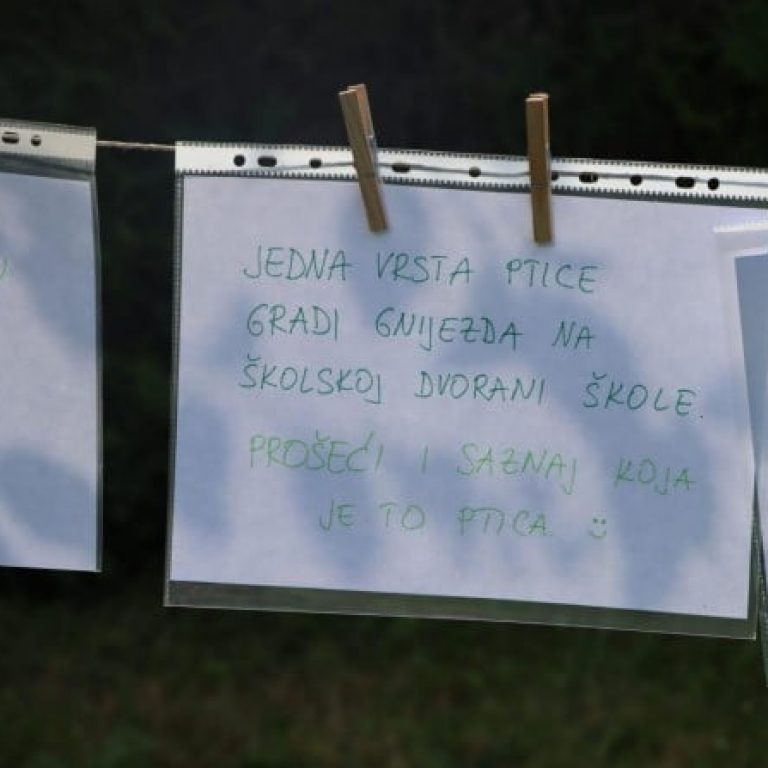 JEDNA VRSTA PTICE
GRADI GNIJEZDA NA
ŠKOLSKOJ DVORANI ŠKOLE.
PROŠEĆI I SAZNAJ KOJA
JE TO PTICA. :)